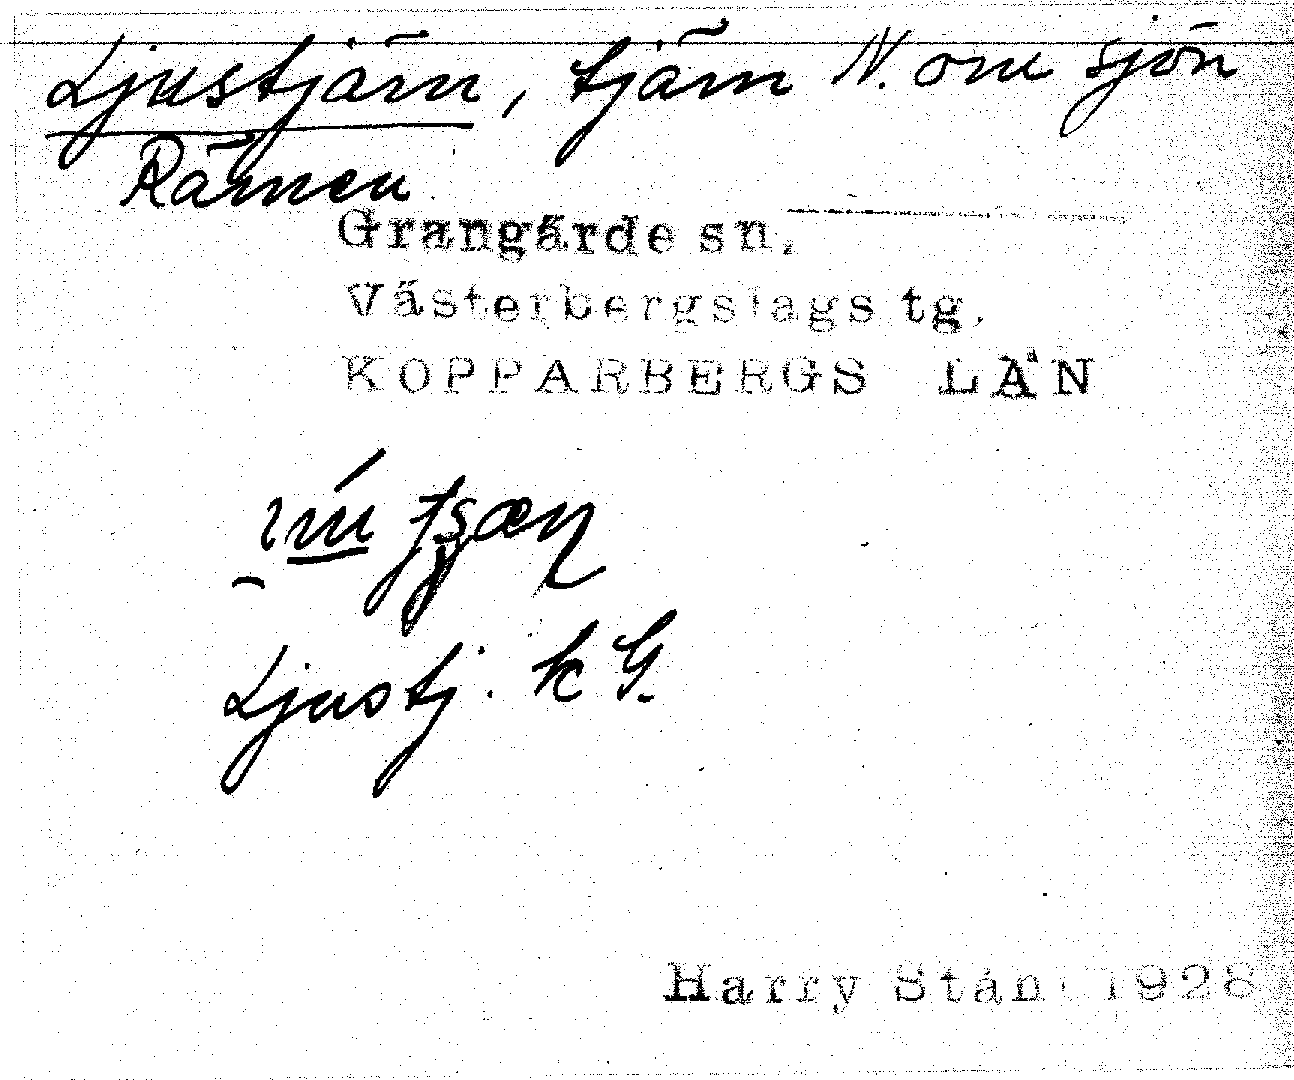 Ljustjärn, tjärn N. om sjön
Rämen
Grangärde sn.
Västerbergslags tg.
KOPPARBERGS LÄN
Ljustj. k G.
Harry Ståhl 1928